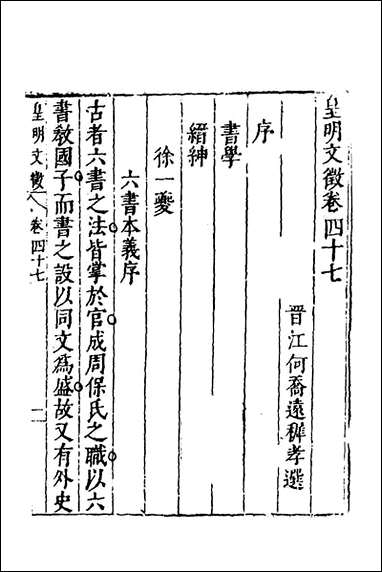 皇明文徵卷四十七
晋江何喬遠穉孝選
序
書學
縉紳
徐一夔
六書本義序
古者六書之法皆掌於官成周保氏之職以六
書敎國子而書之設以同文爲盛故又有外史
皇明文徵 卷四十七 一